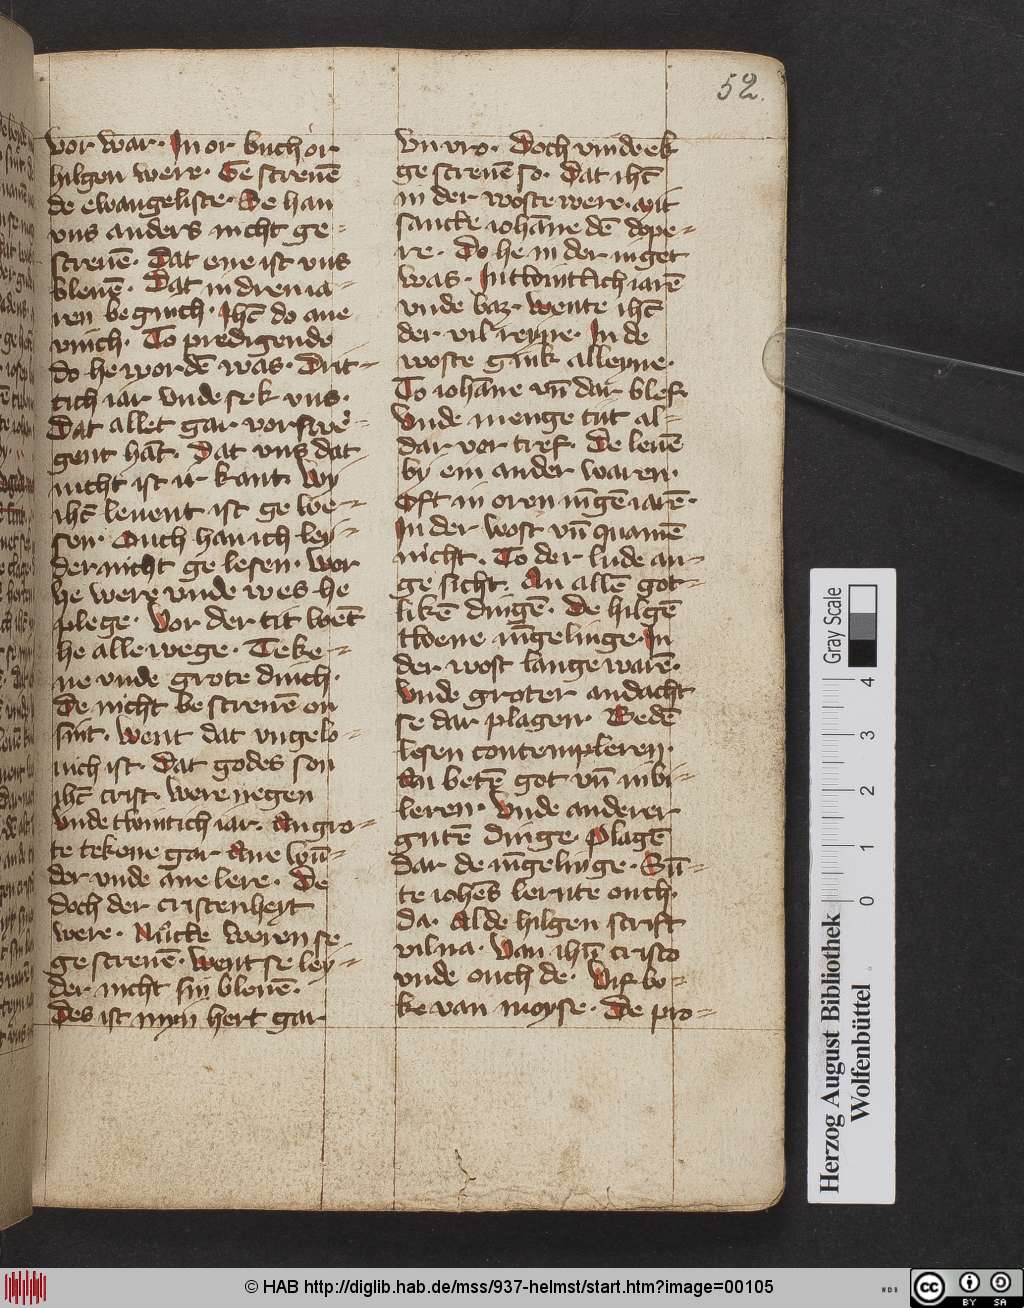 52.
vor war. In or buch or
hilgen were. Ge screuē
de ewangeliste. Se han
vns anders nicht ge-
screuē. Dat eine ist vns
bleuē. Dat in dren ia-
ren beginch. Ihc̄ do ane
vinch. To predigende
do he wordē was. Drit-
tich iar vnde sek vns.
Dat allet gar vorswē-
gent hāt. Dat vns dat
nicht ist ir kant. Wy
ihc̄ leuent ist ge we-
sen. Ouch han ich ley-
der nicht ge lesen. Wor
he were vnde wes he
plege. Vor der tit wēt
he alle wege. Teke-
ne vnde grote dinch.
De nicht be screuē on
sint. Went dat vngelo-
uich ist. Dat godes son
ihc̄ crist. Were negen
vnde twintich iar. An gro-
te tekene gar Ane wū-
der vnde āne lere. De
doch der cristenheyt
were. Nücke weren se
ge screuē. Went se ley-
der nicht sin bleuē.
Des ist myn hert gar
vn vro. Doch vindek
ge screuē so. Dat ihc̄
in der woste were. Mit
sancte iohāne dē dope-
re. Do he in der inget
was. In twintich iarē
vnde baz. Wente ihc̄
der vil reyne. In de
woste gink alleyne.
To iohāne vn̄ dar blef.
Vnde menge tiit al-
dar vor tref. De leuē
by ein ander waren.
Oft in oren iūgē iarē.
In der wost vn̄ quamē
nicht. To der lude an-
ge sicht. An allē got-
likē dingē. De hilgē
twene iūgelinge. In
der wost lange warē.
Vnde groter andacht
se dar plagen. Bedē
lesen contempleren.
An betē got vn̄ iubi-
leren. Vnde anderer
gutē dinge. Plagē
dar de iūgelinge. Sū-
te iohēs lernte ouch.
da. Alde hilgen scrift
vil na. Van ihū cristo
vnde ouch de. Vif bo-
ke van moyse. De pro-
Herzog August Bibliothek
Wolfenbüttel
Gray Scale
0 1 2 3 4
© HAB http://diglib.hab.de/mss/937-helmst/start.htm?image=00105
WDB
cc BY SA